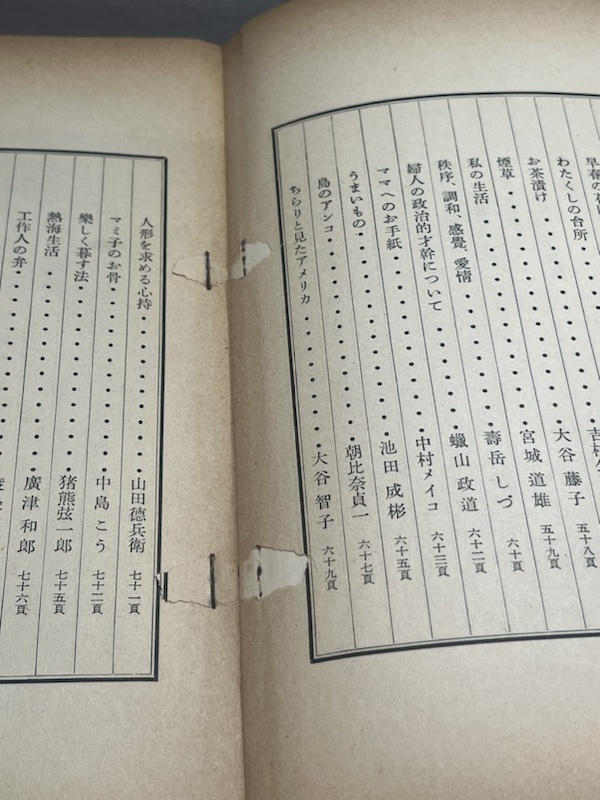 わたくしの台所
お茶漬け 五十八頁
煙草 大谷藤子 五十九頁
私の生活 宮城道雄 六十頁
秩序、調和、感覺、愛情 壽岳しづ 六十二頁
婦人の政治的才幹について 蠟山政道 六十三頁
ママへのお手紙 中村メイコ 六十三頁
うまいもの 池田成彬 六十五頁
島のアンコ 朝比奈貞一 六十七頁
ちらりと見たアメリカ 大谷智子 六十九頁
人形を求める心持 山田德兵衛 七十一頁
マミ子のお骨 中島こう 七十二頁
樂しく暮す法 猪熊弦一郎 七十五頁
熱海生活 廣津和郎 七十六頁
工作人の弁